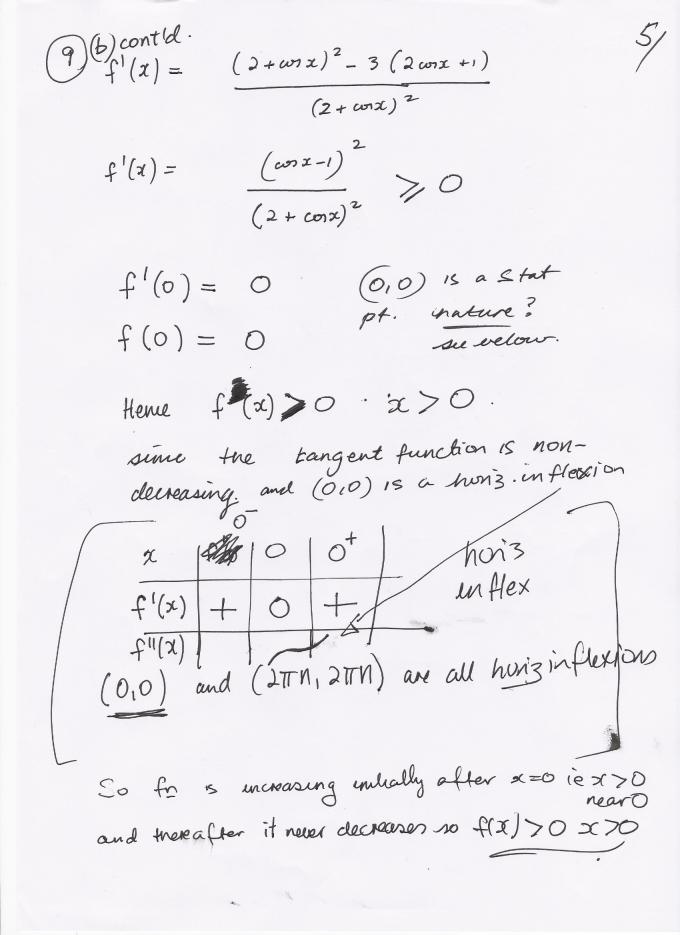 9 (b) cont'd. 5/
f'(x) = ((2+cosx)² - 3(2cosx+1)) / (2+cosx)²
f'(x) = (cosx-1)² / (2+cosx)² ⩾ 0
f'(0) = 0 (0,0) is a stat
pt. nature?
f(0) = 0 see below.
Hence f(x) > 0 · x > 0.
since the tangent function is non-
decreasing. and (0,0) is a horiz. inflexion
x | 0⁻ | 0 | 0⁺ | horiz
inflex
f'(x) | + | 0 | +
f''(x)
(0,0) and (2πn, 2πn) are all horiz inflexions
So fn is increasing initially after x=0 ie x>0
near 0
and thereafter it never decreases so f(x)>0 x>0